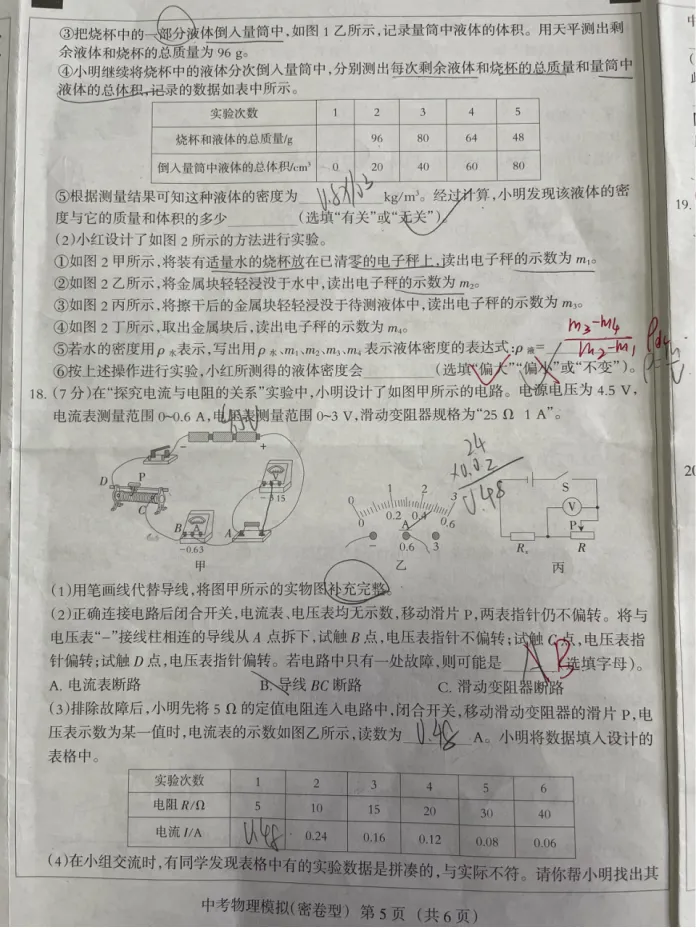 ③把烧杯中的一部分液体倒入量筒中,如图1乙所示,记录量筒中液体的体积。用天平测出剩
余液体和烧杯的总质量为96 g。
④小明继续将烧杯中的液体分次倒入量筒中,分别测出每次剩余液体和烧杯的总质量和量筒中
液体的总体积,记录的数据如表中所示。
实验次数 1 2 3 4 5
烧杯和液体的总质量/g 96 80 64 48
倒入量筒中液体的总体积/cm³ 0 20 40 60 80
⑤根据测量结果可知这种液体的密度为 0.8×10³ kg/m³。经过计算,小明发现该液体的密
度与它的质量和体积的多少______(选填“有关”或“无关”)
(2)小红设计了如图2所示的方法进行实验。
①如图2甲所示,将装有适量水的烧杯放在已清零的电子秤上,读出电子秤的示数为m₁。
②如图2乙所示,将金属块轻轻浸没于水中,读出电子秤的示数为m₂。
③如图2丙所示,将擦干后的金属块轻轻浸没于待测液体中,读出电子秤的示数为m₃。
④如图2丁所示,取出金属块后,读出电子秤的示数为m₄。
⑤若水的密度用ρ水表示,写出用ρ水、m₁、m₂、m₃、m₄表示液体密度的表达式:ρ液= m₃-m₄ / m₂-m₁
⑥按上述操作进行实验,小红所测得的液体密度会______(选填“偏大”“偏小”或“不变”)。
18. (7分)在“探究电流与电阻的关系”实验中,小明设计了如图甲所示的电路。电源电压为4.5 V,
电流表测量范围0~0.6 A,电压表测量范围0~3 V,滑动变阻器规格为“25 Ω 1 A”。
- +
D P C B A A V
-3 15
-0.6 3
甲
0 1 2 3
0 0.2 0.4 0.6
A
- 0.6 3
乙
24
×0.02
0.48
S
V
P
Rₓ R
丙
(1)用笔画线代替导线,将图甲所示的实物图补充完整。
(2)正确连接电路后闭合开关,电流表、电压表均无示数,移动滑片P,两表指针仍不偏转。将与
电压表“-”接线柱相连的导线从A点拆下,试触B点,电压表指针不偏转;试触C点,电压表指
针偏转;试触D点,电压表指针偏转。若电路中只有一处故障,则可能是 B (选填字母)。
A. 电流表断路 B. 导线BC断路 C. 滑动变阻器断路
(3)排除故障后,小明先将5 Ω的定值电阻连入电路中,闭合开关,移动滑动变阻器的滑片P,电
压表示数为某一值时,电流表的示数如图乙所示,读数为 0.48 A。小明将数据填入设计的
表格中。
实验次数 1 2 3 4 5 6
电阻R/Ω 5 10 15 20 30 40
电流I/A 0.48 0.24 0.16 0.12 0.08 0.06
(4)在小组交流时,有同学发现表格中有的实验数据是拼凑的,与实际不符。请你帮小明找出其
中考物理模拟(密卷型) 第5页 (共6页)
19.